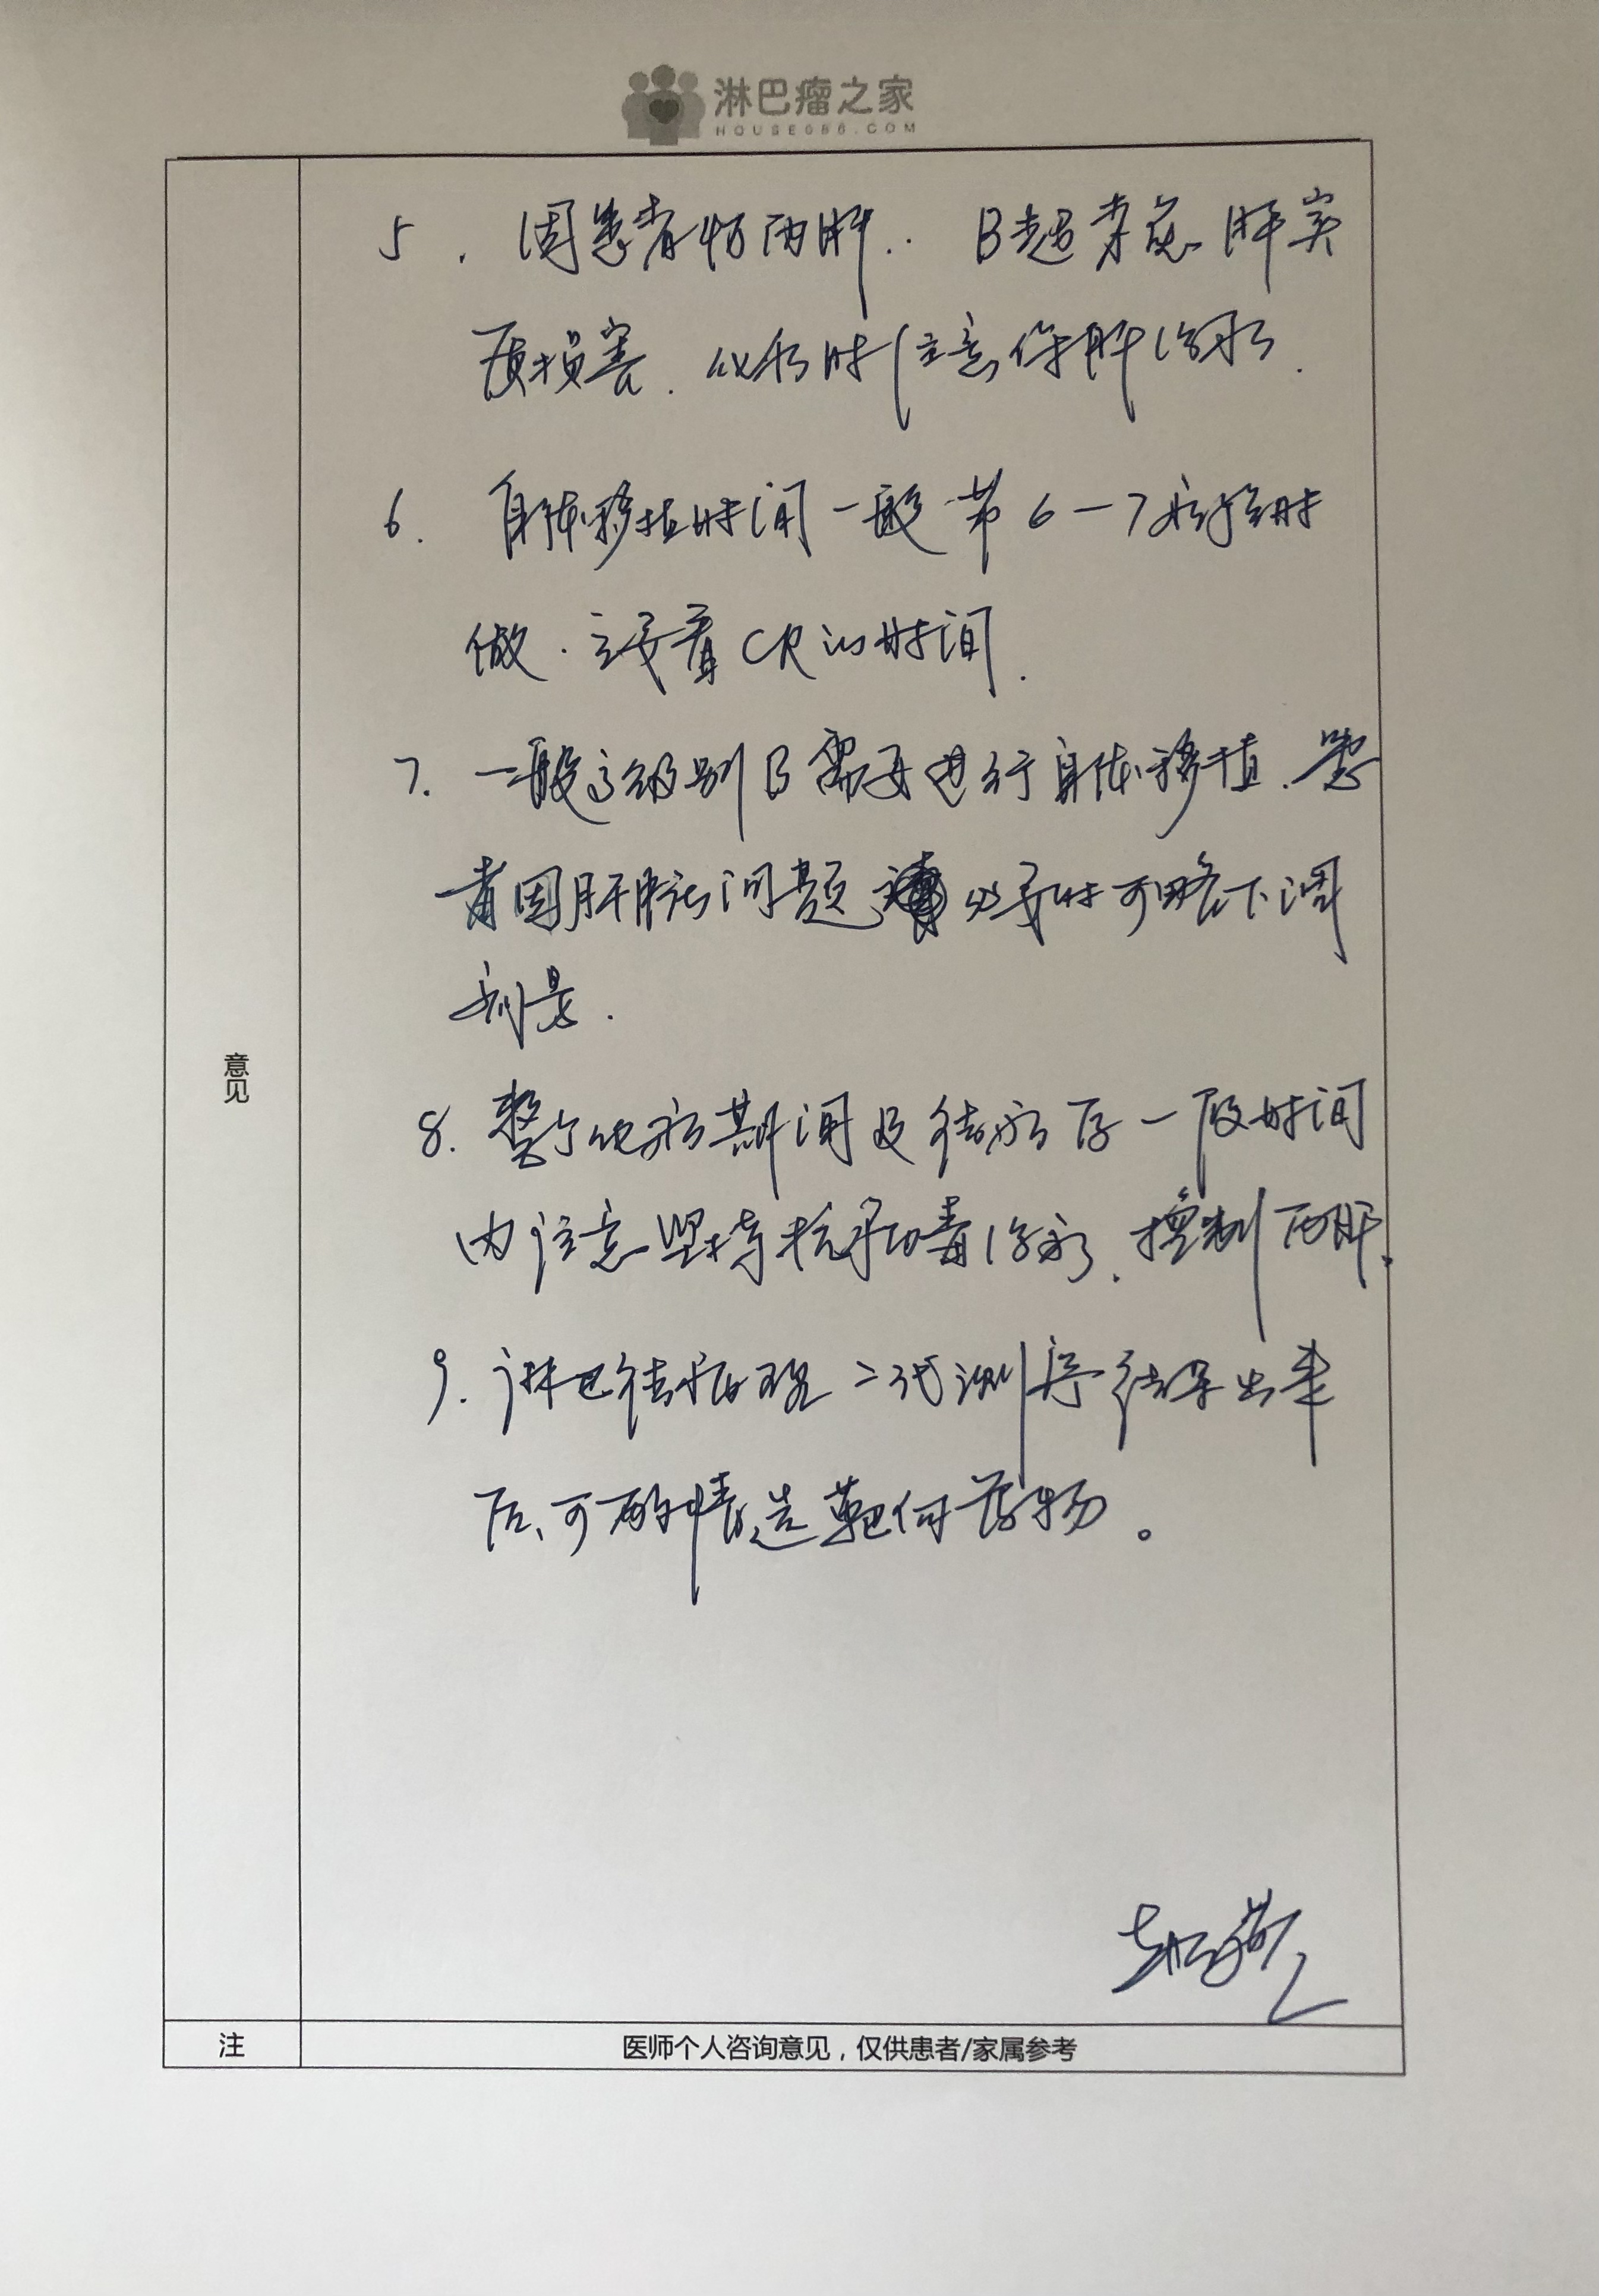 淋巴瘤之家
HOUSE086.COM
5. 因患者怕丙肝. B超考虑肝实
质损害. 化疗时注意保肝治疗.
6. 自体移植时间一般第6-7疗程时
做.主要看CR的时间.
7. 一般高级别B需要进行自体移植.患
者因肝脏问题 必要时可略下调
剂量.
8. 整个化疗期间及结疗后一段时间
内注意坚持抗病毒治疗.控制丙肝.
9. 淋巴结病理二代测序结果出来
后、可酌情选靶向药物。
意见
注
医师个人咨询意见,仅供患者/家属参考